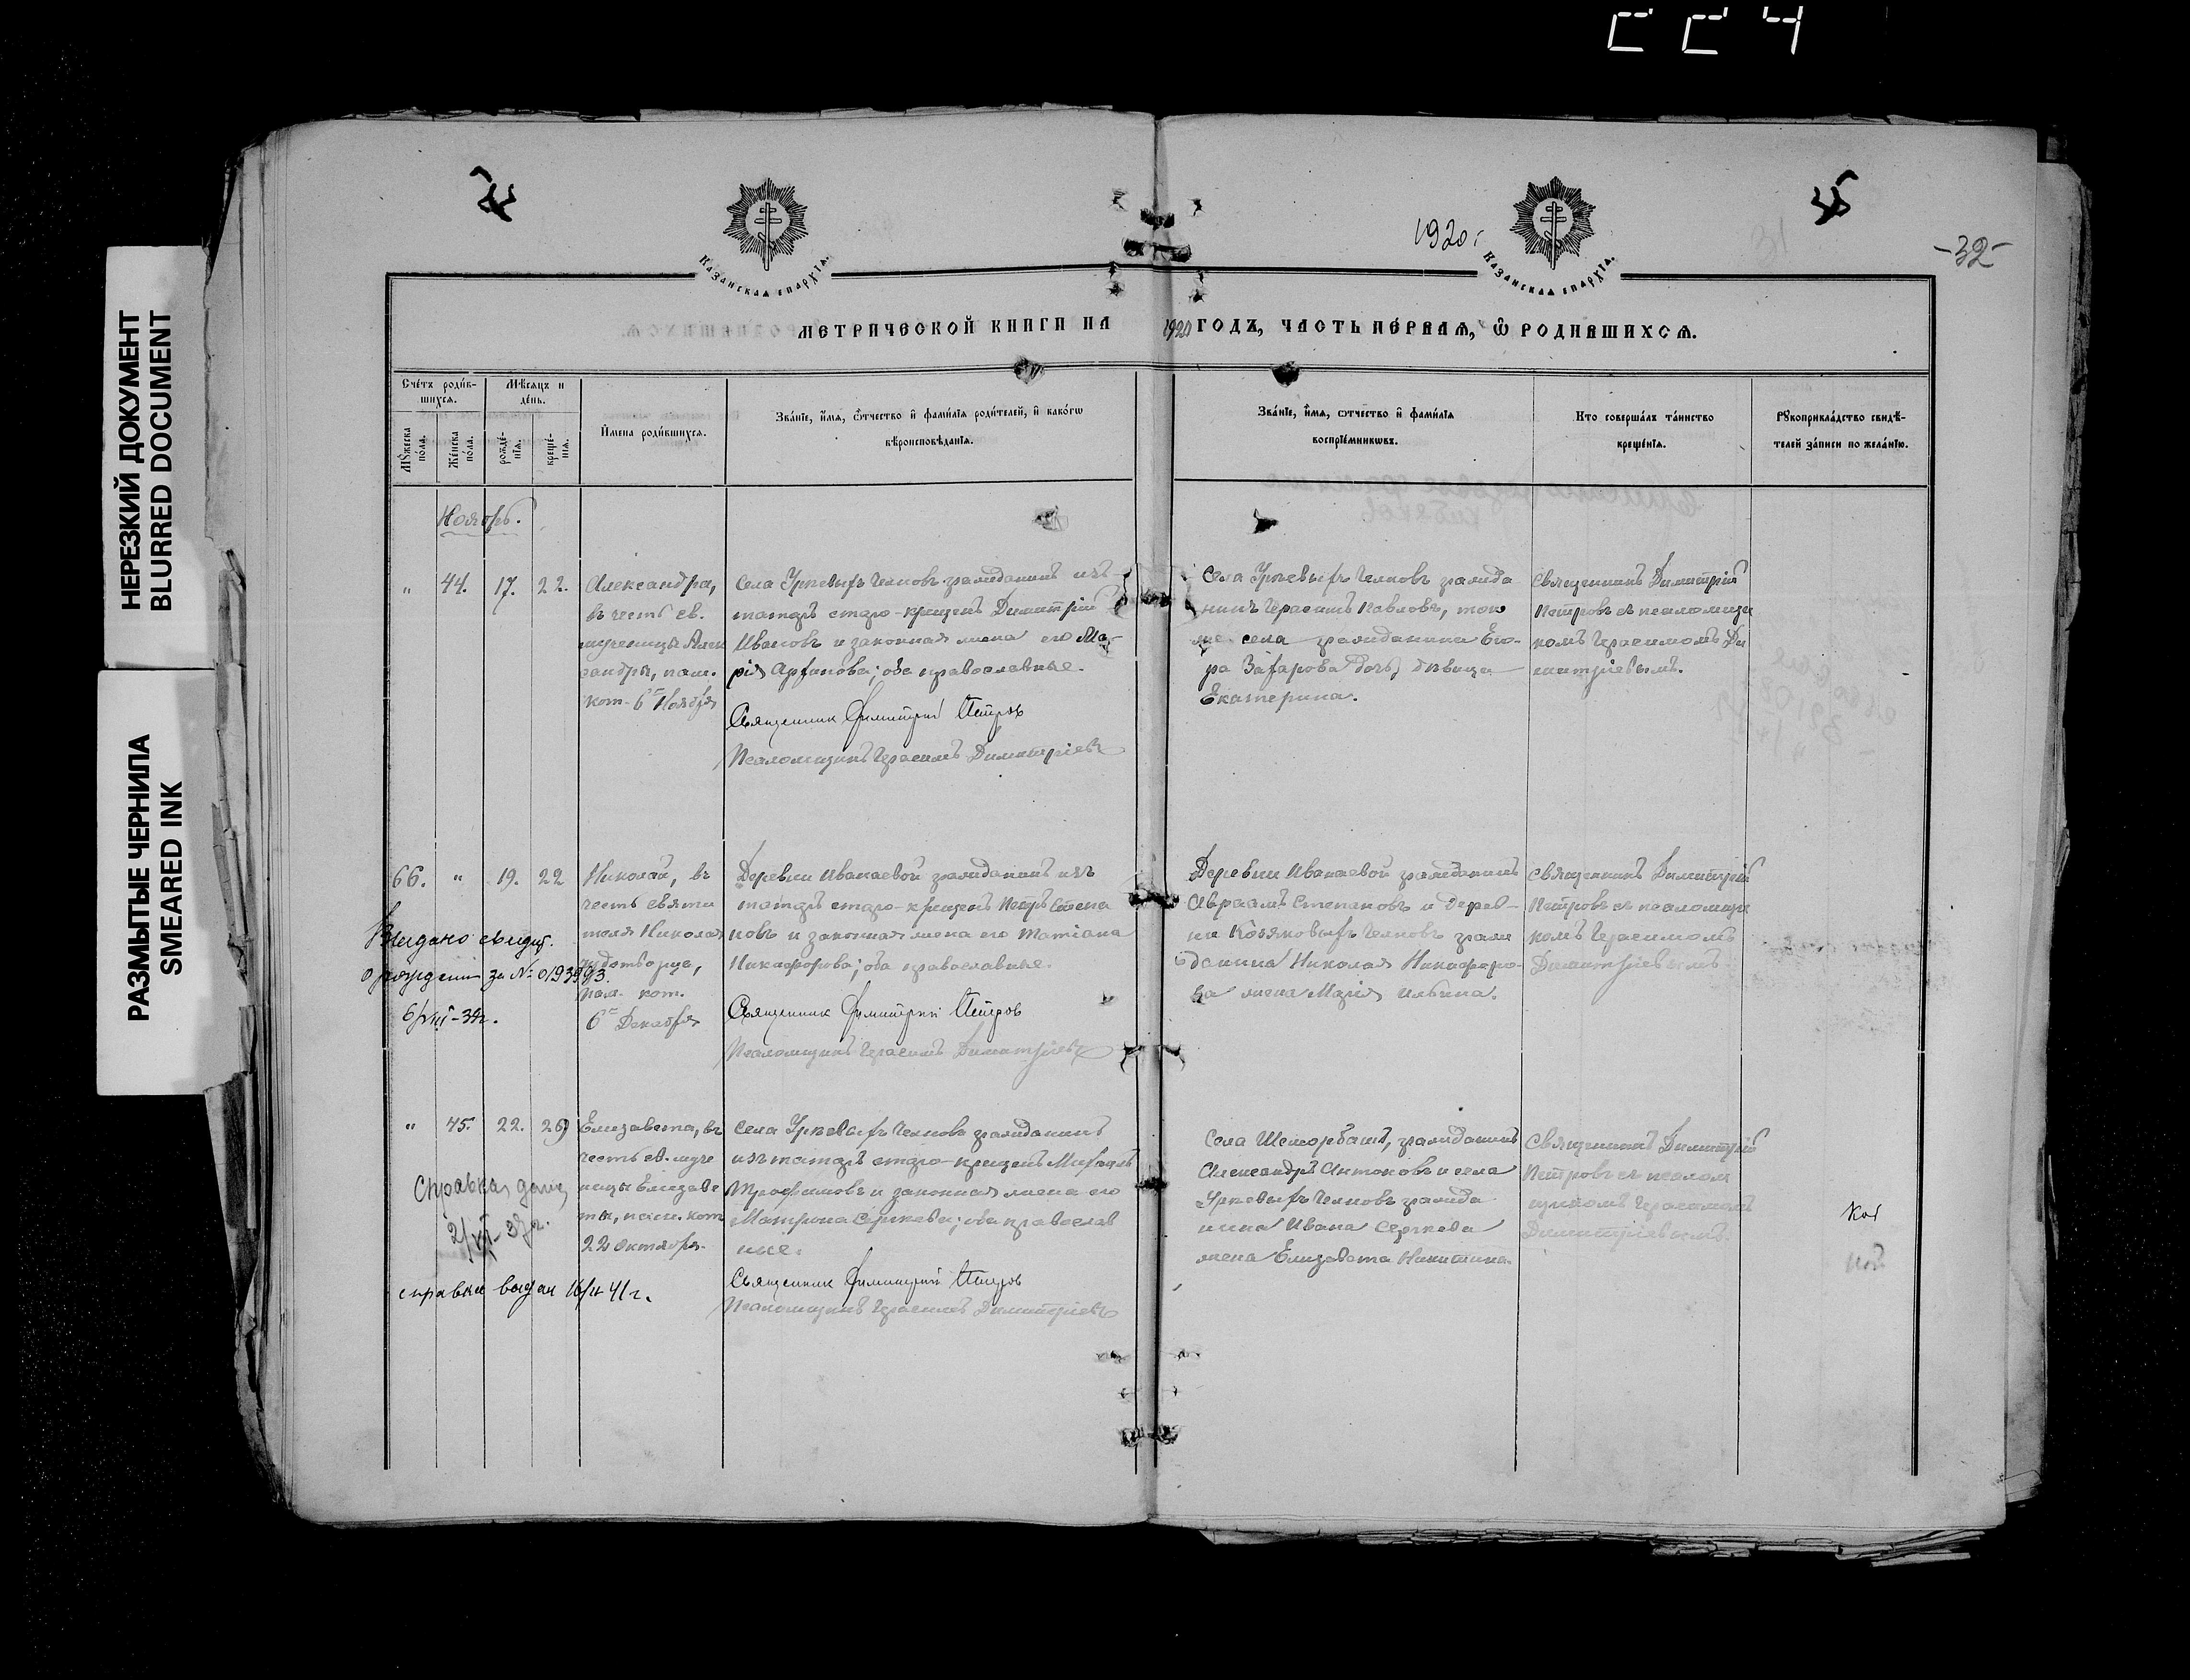 НЕРЕЗКИЙ ДОКУМЕНТ
BLURRED DOCUMENT
РАЗМЫТЫЕ ЧЕРНИЛА
SMEARED INK
Казанская епархїя.
1920 г
Казанская епархїя.
-32-
МЕТРИЧЕСКОЙ КНИГИ НА 1920 ГОДЪ, ЧАСТЬ ПЕРВАЯ, Ѡ РОДИВШИХСЯ.
Счетъ родив-
шихся.
Мѣсяцъ и
день.
Мꙋжеска пола.
Женска пола.
рожде-
нїя.
креще-
нїя.
Имена родившихся.
Званїе, имя, ѿчество и фамилїя родителей, и какогѡ
вѣроисповѣданїя.
Званїе, имя, ѿчество и фамилїя
воспрїемникωвъ.
Кто совершалъ таинство
крещенїя.
Рꙋкоприкладство свидѣ-
телей записи по желанїю.
Ноябрь.
" 44. 17. 22.
Александра,
въ честь св.
мученицы Алек
сандры, пам.
кот. 6го Ноября
Села Урясевыхъ Челновъ гражданинъ изъ
татаръ старо-крещенъ Димитрій
Ивановъ и законная жена его Ма-
рія; оба православные.
Священник Димитрий Петров
Псаломщикъ Герасимъ Димитріевъ
Села Челновъ гражда
нинъ Герасимъ Павловъ, того
же села гражданина Его-
ра Захарова дочь, дѣвица
Екатерина.
Священникъ Димитрій
Петровъ съ псаломщи
комъ Герасимомъ Ди
митріевымъ.
66. " 19. 22
Николай, въ
честь святи
теля Николая
чудотворца,
пам. кот.
6го Декабря
Деревни Иванаевой гражданинъ изъ
татаръ старо-крещенъ Петръ Степа
новъ и законная жена его Татіана
Никифорова; оба православные.
Священник Димитрий Петров
Псаломщикъ Герасимъ Димитріевъ
Деревни Иванаевой гражданинъ
Авраамъ Степановъ и дерев-
ни Козяковыхъ Челновъ граж
данина Николая Никифоро-
ва жена Марія Ильина.
Священникъ Димитрій
Петровъ съ псаломщи
комъ Герасимомъ
Димитріевымъ
Выдано свидет.
о рождении за №
" 45. 22. 29
Елизавета, въ
честь св. муче
ницы Елизаве
ты, пам. кот
22 октября.
Села Челновъ гражданинъ
изъ татаръ старо-крещенъ Михаилъ
Трофимовъ и законная жена его
Матрона Сергѣева; оба православ
ные.
Священник Димитрий Петров
Псаломщикъ Герасимъ Димитріевъ
Села Шеморбашъ, гражданинъ
Александръ Антоновъ и села
Челновъ гражда
нина Ивана Сергѣева
жена Елизавета Никитина.
Священникъ Димитрій
Петровъ съ псалом
щикомъ Герасимомъ
Димитріевымъ.
Справка дана
справка выдан 16/II 41 г.